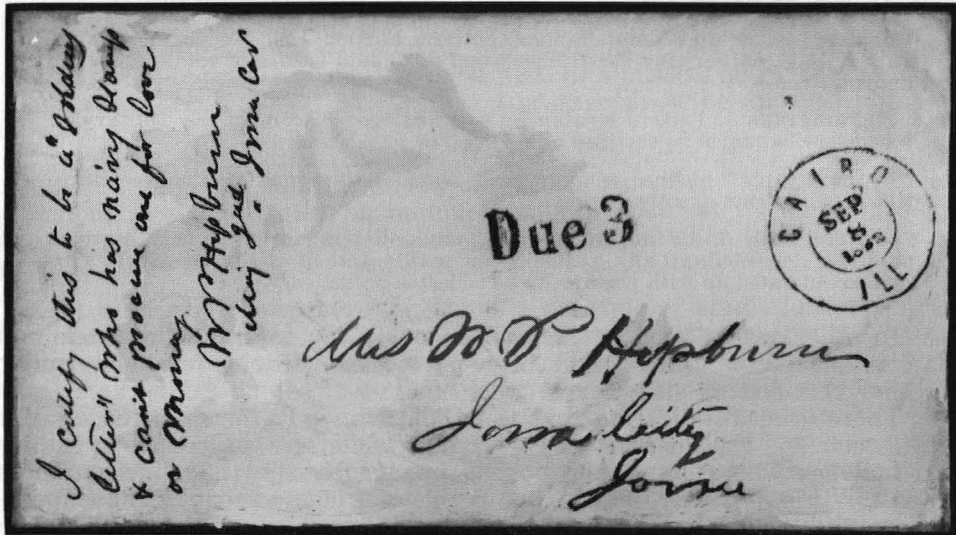 I certify this to be a "Soldiers
letter" who has nairy stamp
& can't procure one for love
or money
W P Hepburn
2nd Iowa Cav
Due 3
CAIRO
SEP
5
ILL
Mrs W P Hepburn
Iowa City
Iowa